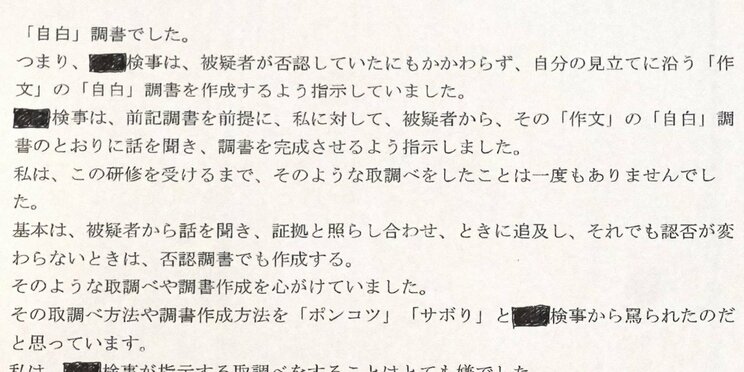 「自白」調書でした。
つまり、検事は、被疑者が否認していたにもかかわらず、自分の見立てに沿う「作
文」の「自白」調書を作成するよう指示していました。
検事は、前記調書を前提に、私に対して、被疑者から、その「作文」の「自白」調
書のとおりに話を聞き、調書を完成させるよう指示しました。
私は、この研修を受けるまで、そのような取調べをしたことは一度もありませんでし
た。
基本は、被疑者から話を聞き、証拠と照らし合わせ、ときに追及し、それでも認否が変
わらないときは、否認調書でも作成する。
そのような取調べや調書作成を心がけていました。
その取調べ方法や調書作成方法を「ポンコツ」「サボり」と検事から罵られたのだ
と思っています。
私は、検事が指示する取調べをすることはとても嫌でした。